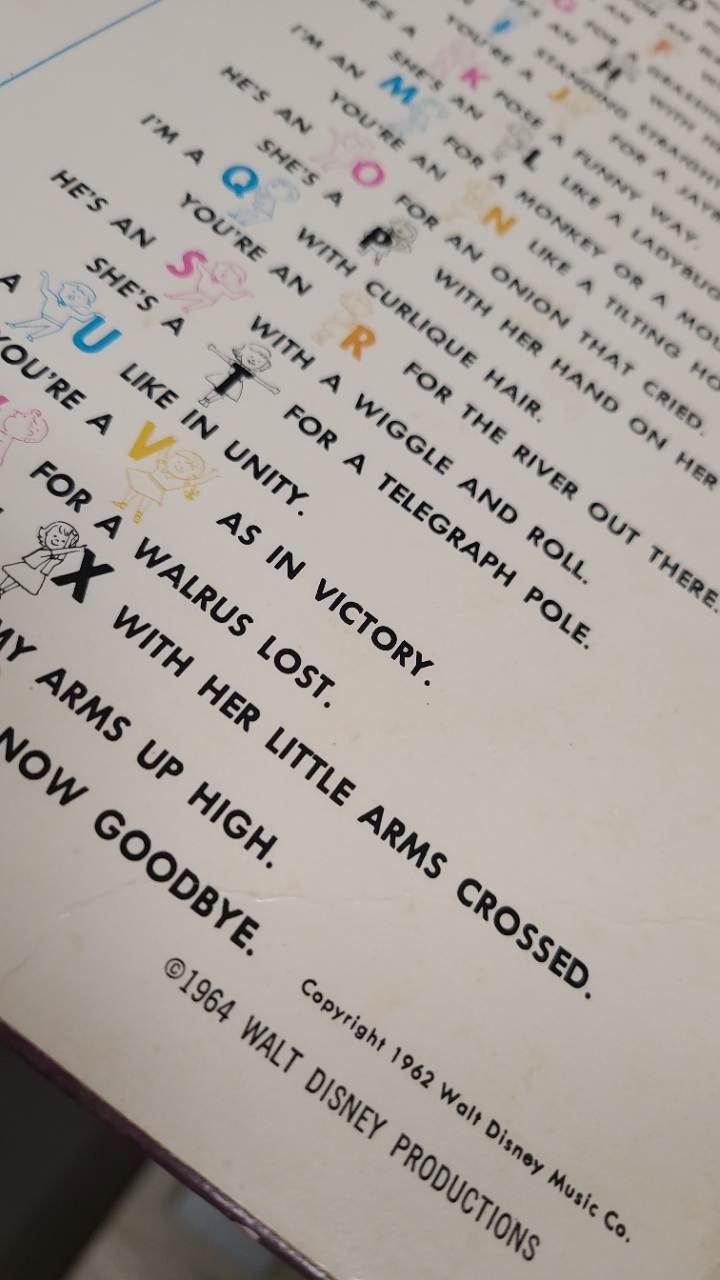 G FOR A
H WITH
I STANDING STRAIGHT
YOU'RE A J FOR A
K POSE A FUNNY WAY.
SHE'S AN L LIKE A LADYBUG
I'M AN M FOR A MONKEY OR A
YOU'RE AN N LIKE A TILTING
HE'S AN O FOR AN ONION THAT CRIED.
SHE'S A P WITH HER HAND ON HER
I'M A Q WITH CURLIQUE HAIR.
YOU'RE AN R FOR THE RIVER OUT THERE.
HE'S AN S WITH A WIGGLE AND ROLL.
SHE'S A T FOR A TELEGRAPH POLE.
A U LIKE IN UNITY.
YOU'RE A V AS IN VICTORY.
FOR A WALRUS LOST.
X WITH HER LITTLE ARMS CROSSED.
MY ARMS UP HIGH.
NOW GOODBYE.
Copyright 1962 Walt Disney Music Co.
©1964 WALT DISNEY PRODUCTIONS